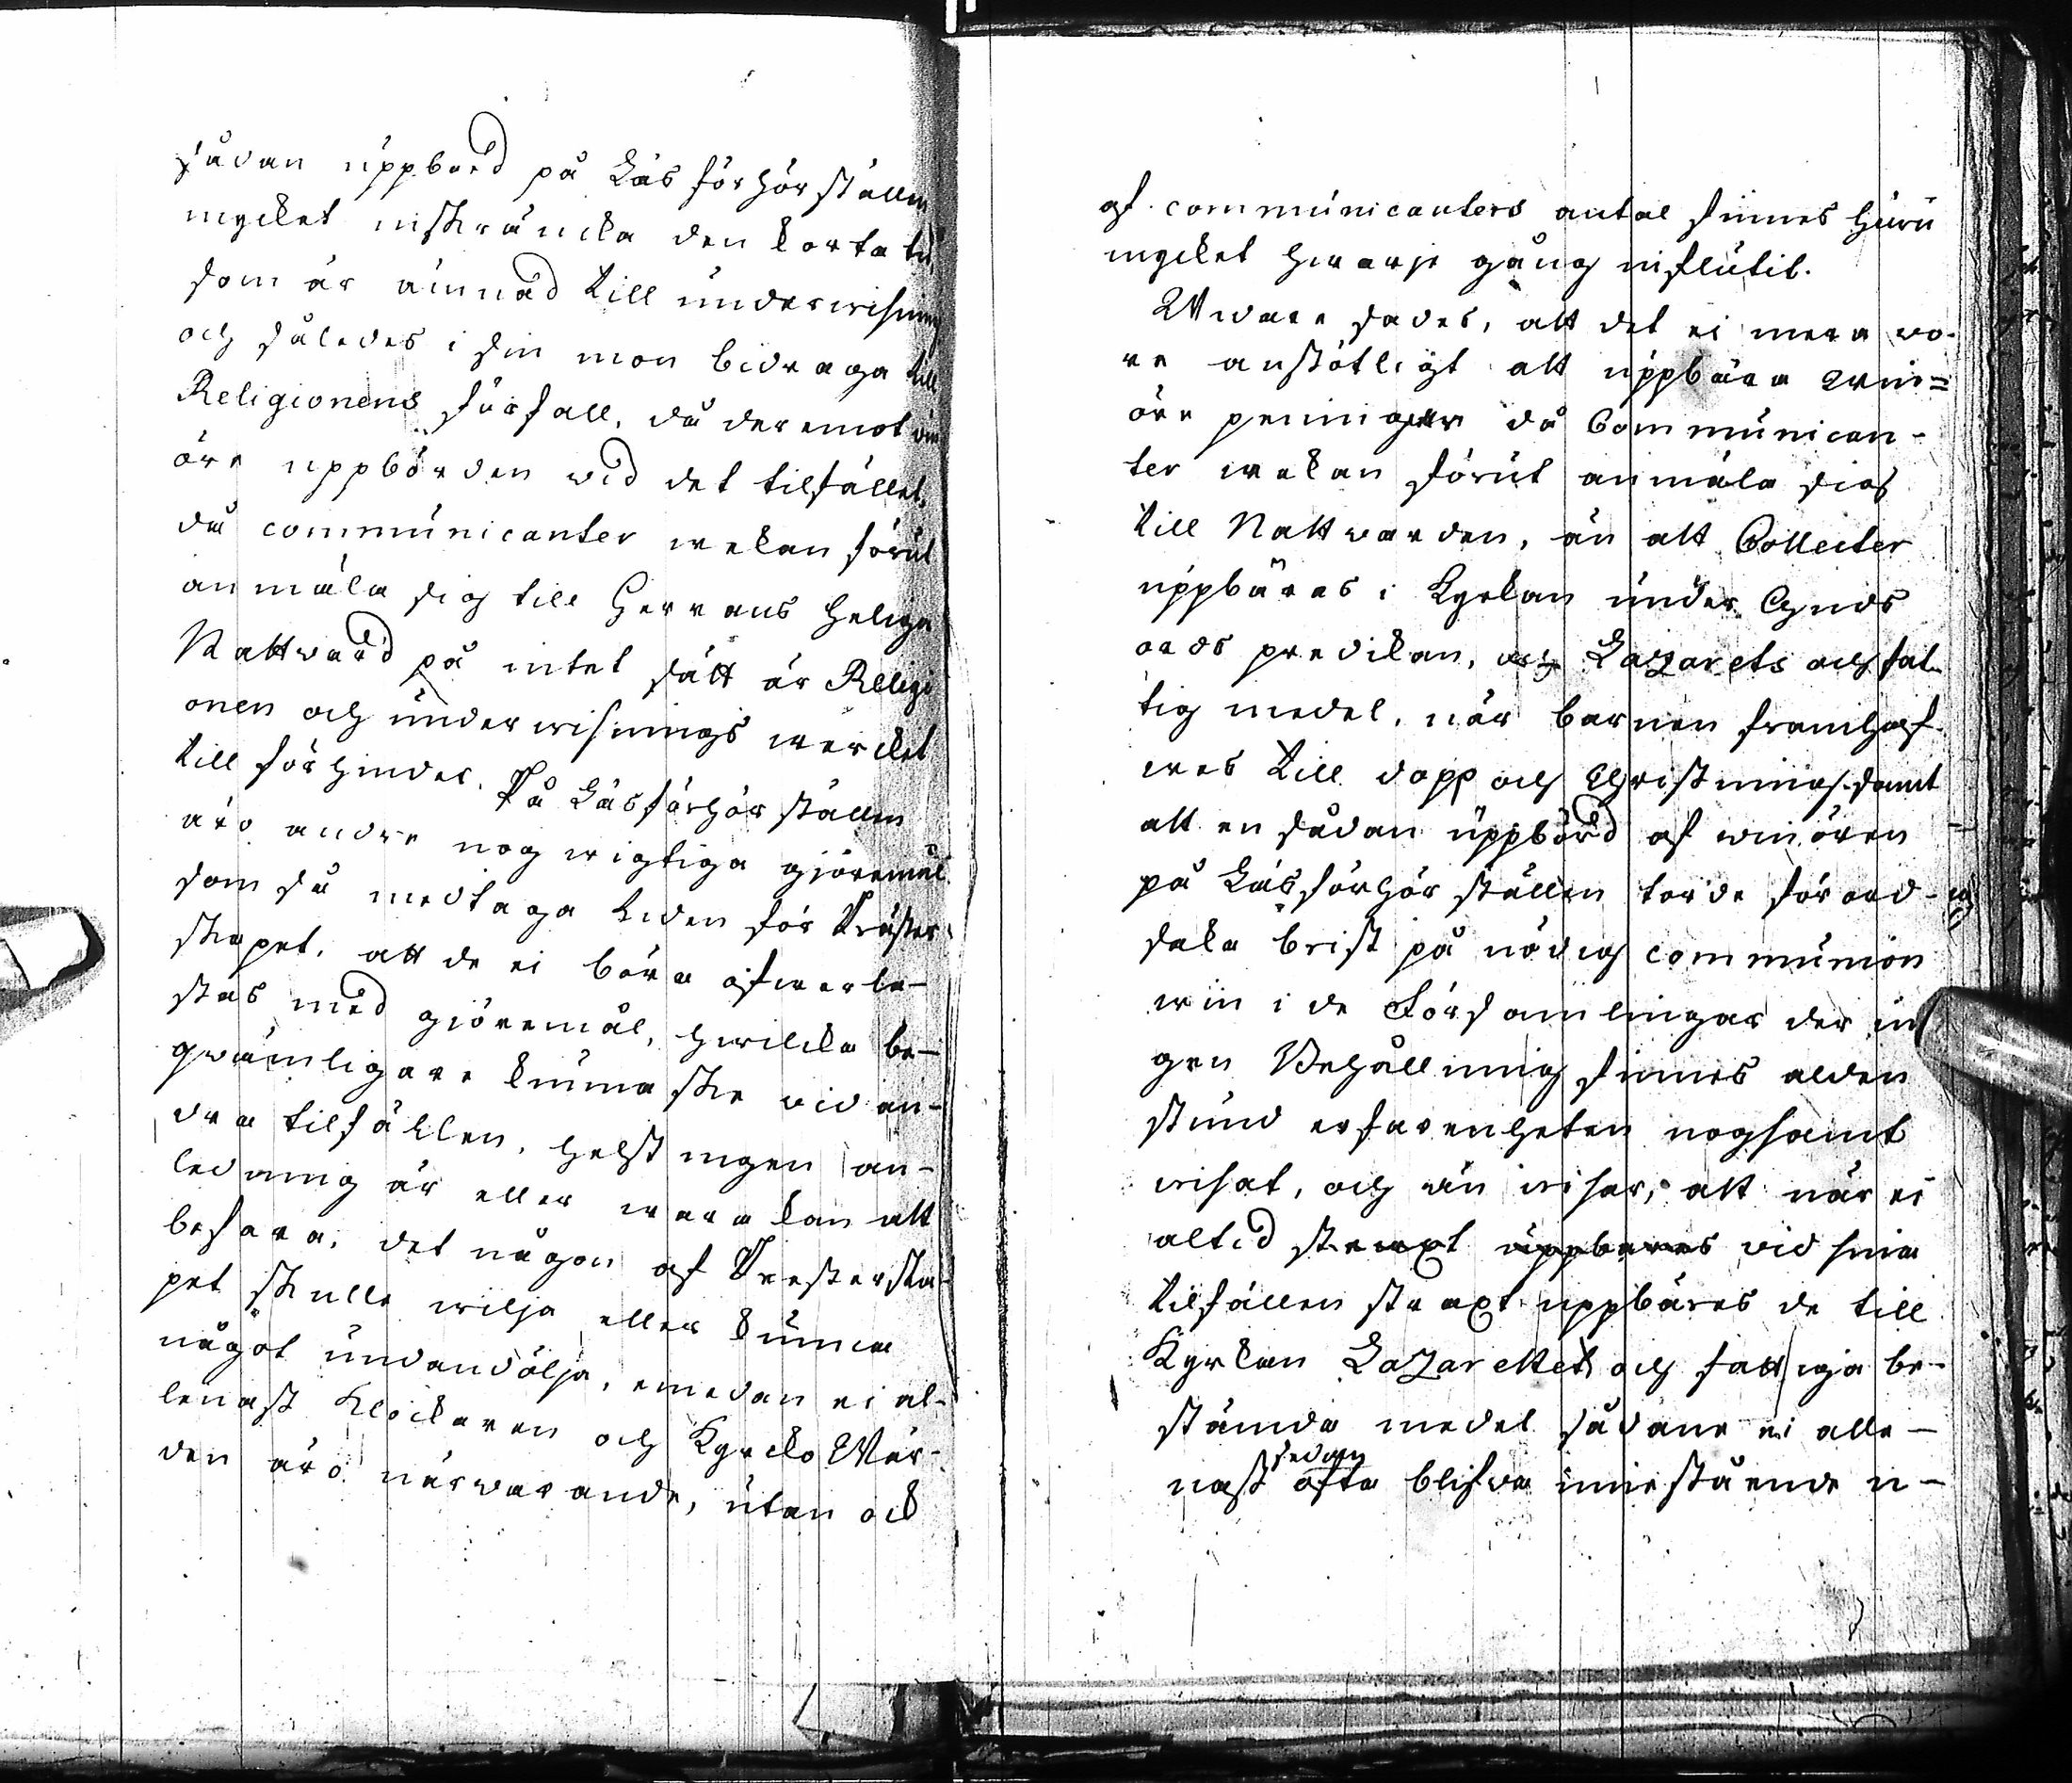 sådan uppbörd på Läsförhörställen
mycket inskräncka den korta tid
som är ämnad till underwisning
och således i sin mon bidraga till
Religionens förfall, då deremot win
öre uppbörden wid det tilfället,
då communicanter wekan förut
anmäla sig till Herrans heliga
Nattward på intet sätt är Religi
onen och underwisnings wercket
till förhinder. På Läsförhörställen
äro andre nog wigtiga giöremål
som så medtaga tiden för Präster
skapet, att de ei böra öfwerla-
stas med giöremål, hwilcka be-
qwämligare kunna ske wid an-
dra tilfällen, helst ingen an-
ledning är eller wara kan att
befara, det någon af Presterska-
pet skulle wilja eller kunna
något undandölja, emedan ei al-
lenast Klockaren och Kyrcko Wär-
den äro närwarande, utan ock
af communicanters antal finnes huru
mycket hwarje gång influtit.
Widare sades, att det ei mera wo-
re anstötligt att uppbära win=
öre penningar då Communican-
ter wekan förut anmäla sig
till Nattwarden, än att Collecter
uppbäras i Kyrkan under Guds
ords predikan, och Lazarets och fat-
tig medel, när barnen framhaf-
wes till dop och Christning, samt
att en sådan uppbörd af winören
på Läsförhörställen torde förord-
saka brist på nödig communion
win i de Församlingar der in
gen Behållning finnes alden
stund erfarenheten nogsamt
wisat, och än wisar, att när ei
altid straxt uppbæres wid sina
tilfällen straxt uppbäres de till
Kyrkan Lazarettet och fattiga be-
stämda medel sådane ei alle-
nast sedan ofta blifwa innestående u-